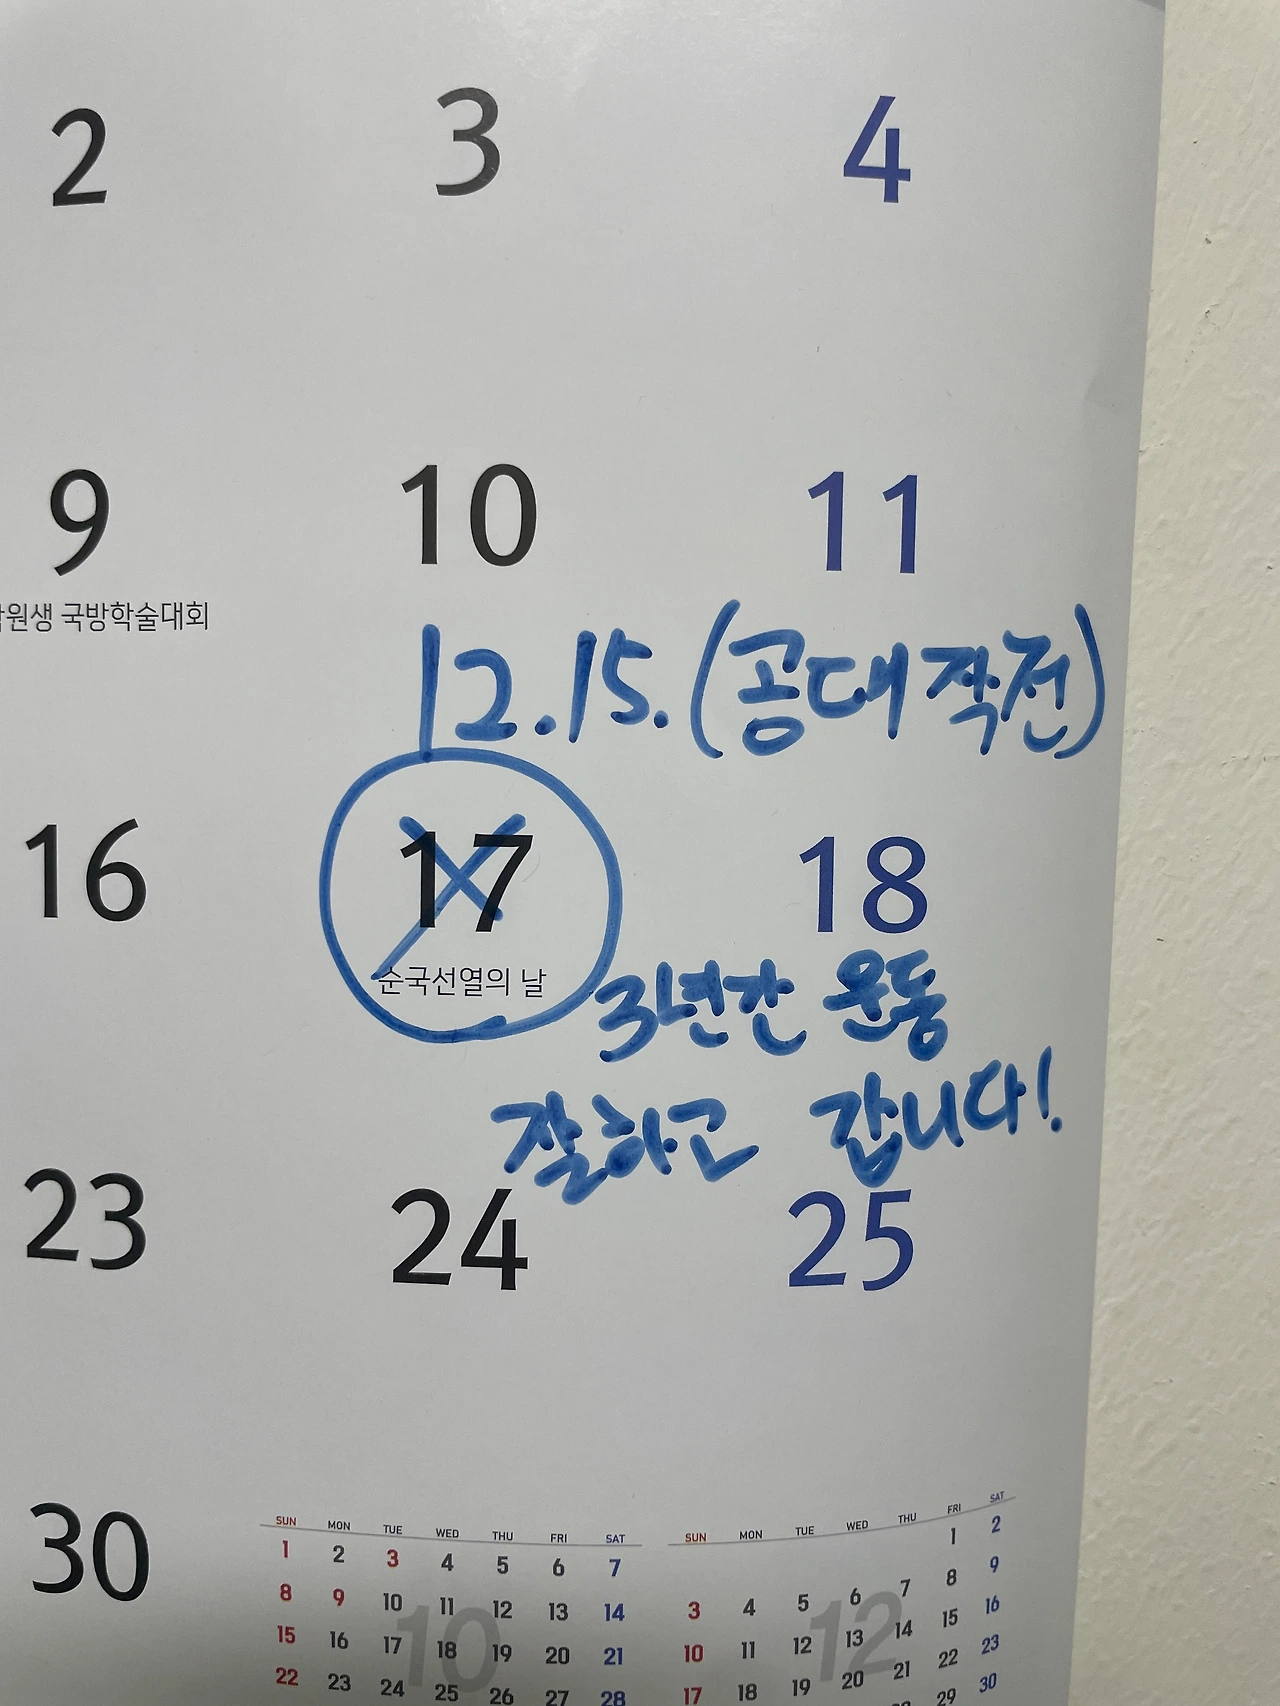 2 3 4
9 10 11
원생 국방학술대회
12.15.(공대작전)
16 17 18
순국선열의 날
3년간 운동
잘하고 갑니다!
23 24 25
30
SUN MON TUE WED THU FRI SAT
1 2 3 4 5 6 7
8 9 10 11 12 13 14
15 16 17 18 19 20 21
22 23 24 25 26 27 28
10
SUN MON TUE WED THU FRI SAT
1 2
3 4 5 6 7 8 9
10 11 12 13 14 15 16
17 18 19 20 21 22 23
29 30
12